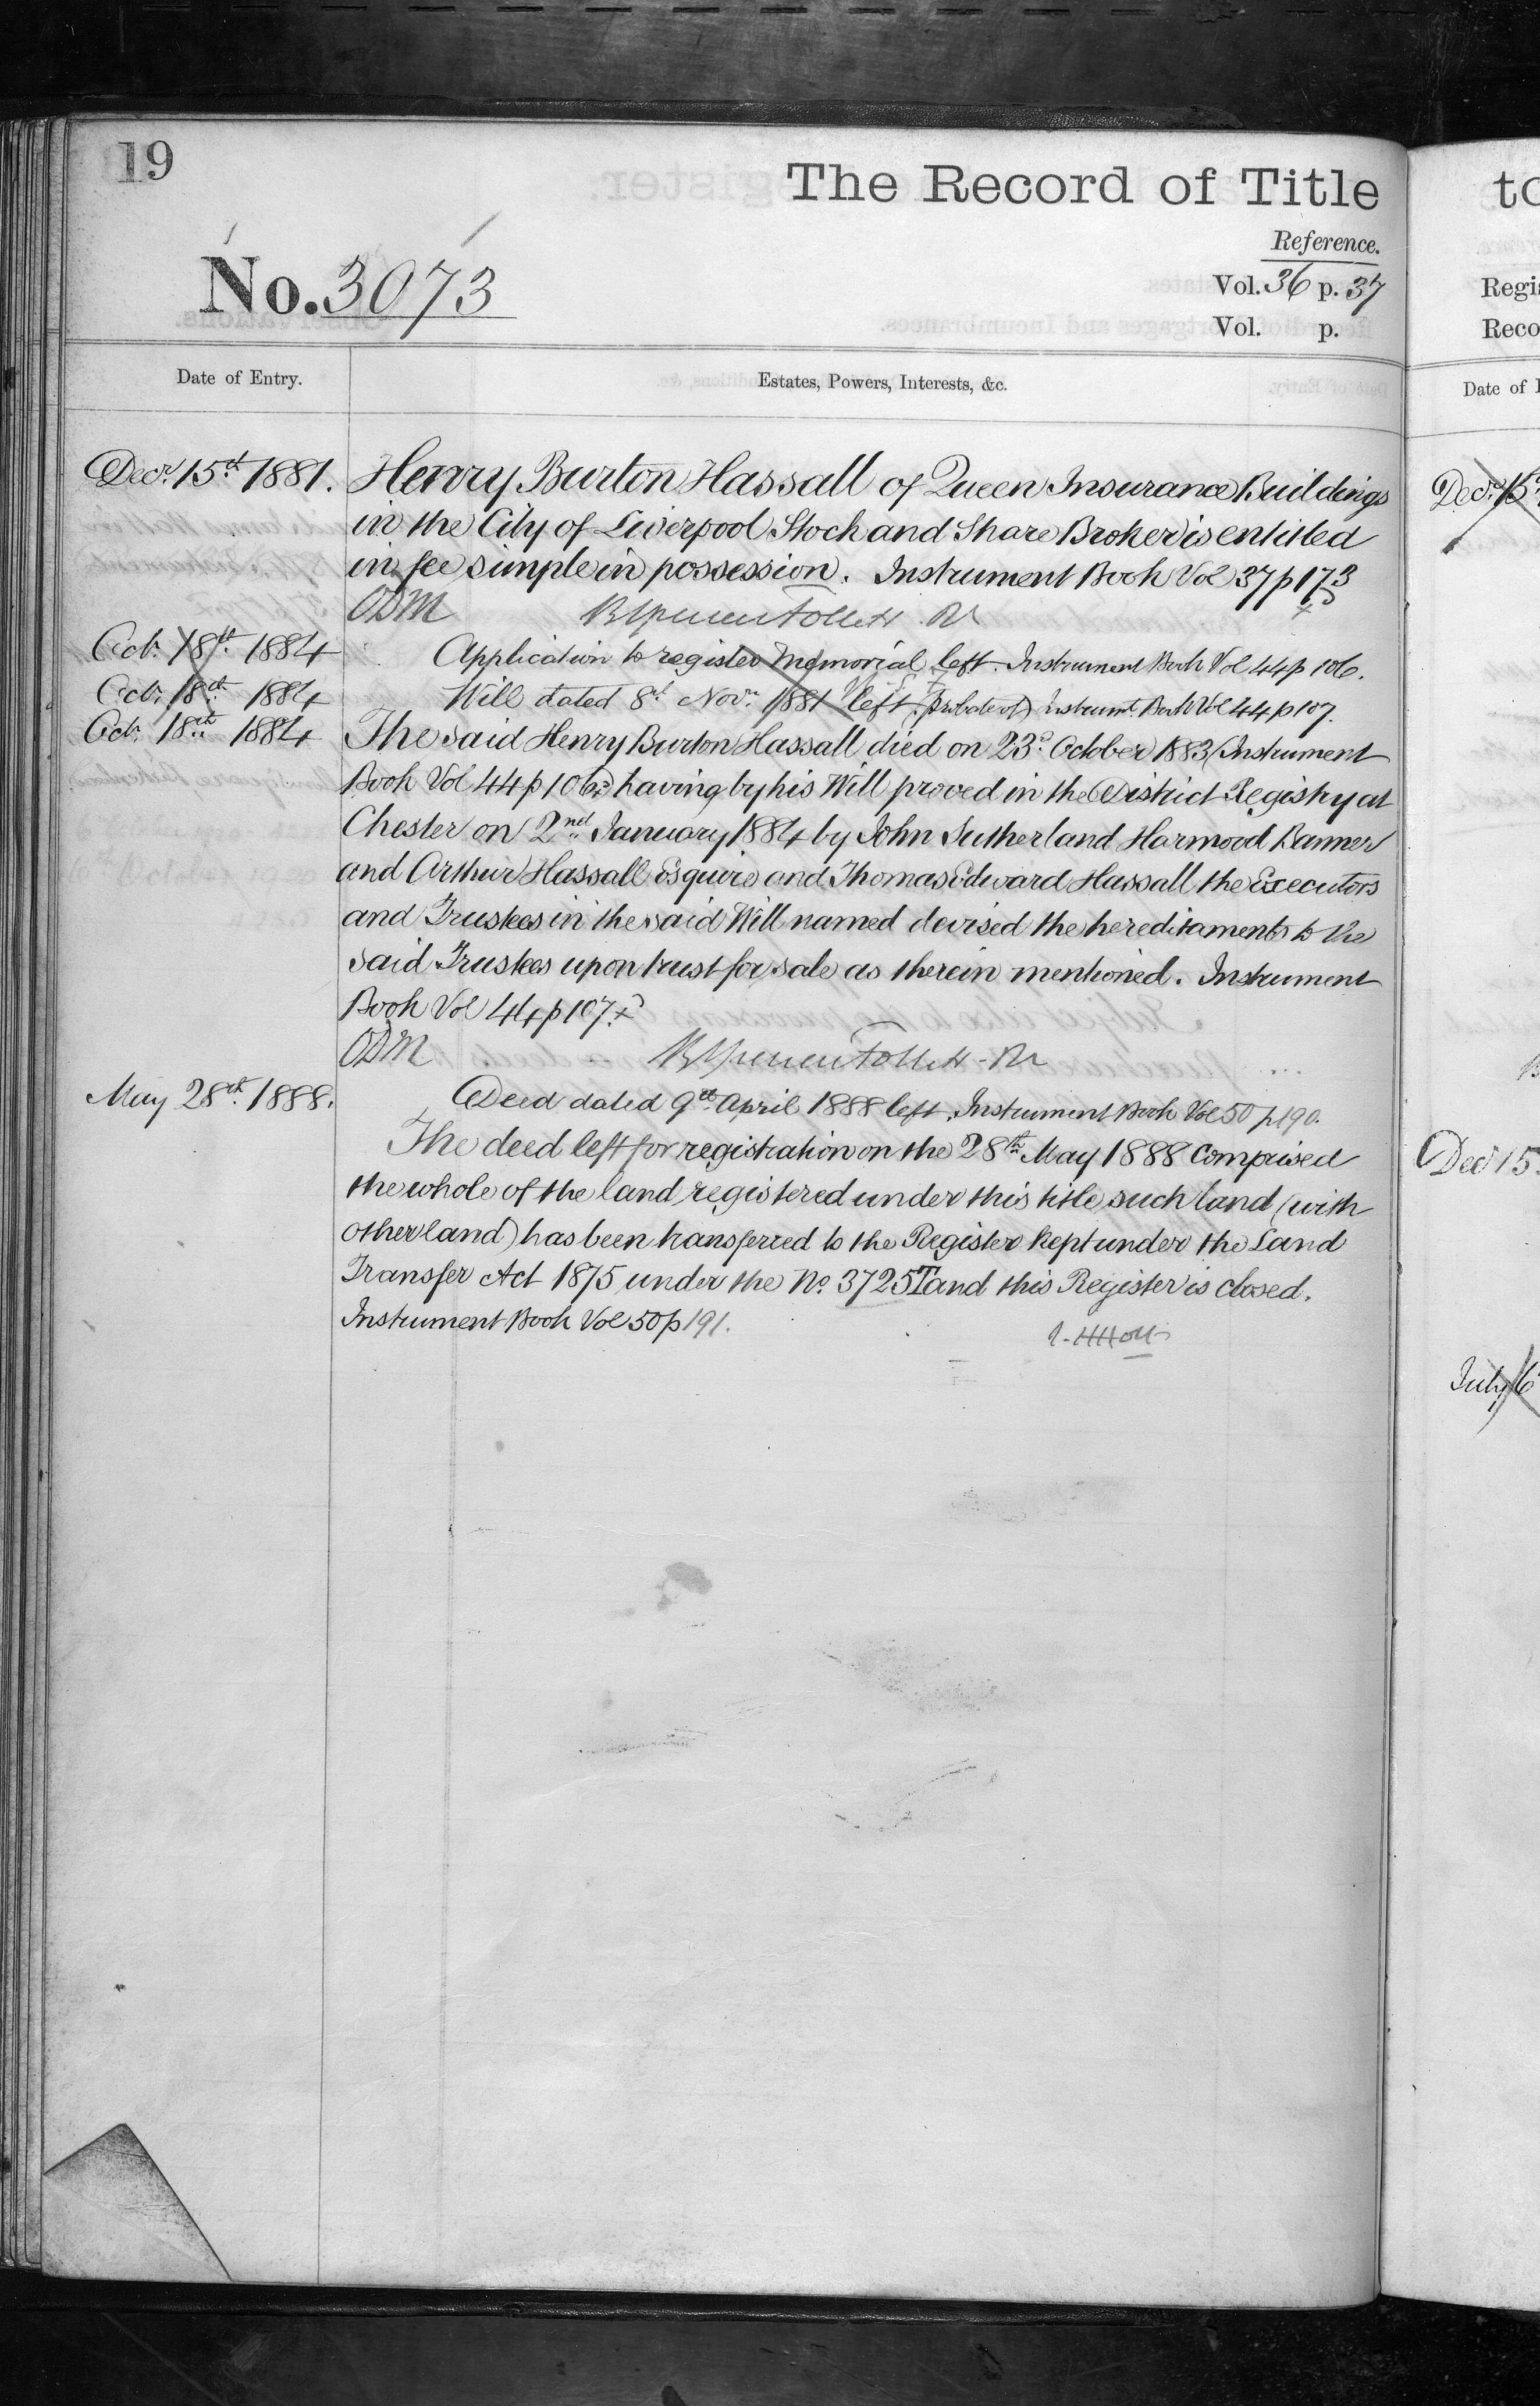 19
The Record of Title
Reference.
No. 3073
Vol. 36 p. 37
Vol. p.
Date of Entry.
Estates, Powers, Interests, &c.
Decr. 15th 1881. Henry Burton Hassall of Queen Insurance Buildings
in the City of Liverpool Stock and Share Broker is entitled
in fee simple in possession. Instrument Book Vol 37 p 173
ODM
Octr. 18th 1884 Application to register Memorial left. Instrument Book Vol 44 p 106.
Octr. 18th 1884 Will dated 8th Novr. 1881 left (probate of) Instrumt. Book Vol 44 p 107.
Octr. 18th 1884 The said Henry Burton Hassall died on 23d. October 1883 (Instrument
Book Vol 44 p 106) having by his Will proved in the District Registry at
Chester on 2nd January 1884 by John Sutherland Harmood Banner
and Arthur Hassall Esquire and Thomas Edward Hassall the Executors
and Trustees in the said Will named devised the hereditaments to the
said Trustees upon trust for sale as therein mentioned. Instrument
Book Vol 44 p 107.
ODM
May 28th 1888. Deed dated 9th April 1888 left. Instrument Book Vol 50 p 190.
The deed left for registration on the 28th May 1888 comprised
the whole of the land registered under this title such land (with
other land) has been transferred to the Register kept under the Land
Transfer Act 1875 under the No. 3725T and this Register is closed.
Instrument Book Vol 50 p 191.
to
Regi
Reco
Date of
Decr. 15
Decr 15
July 6